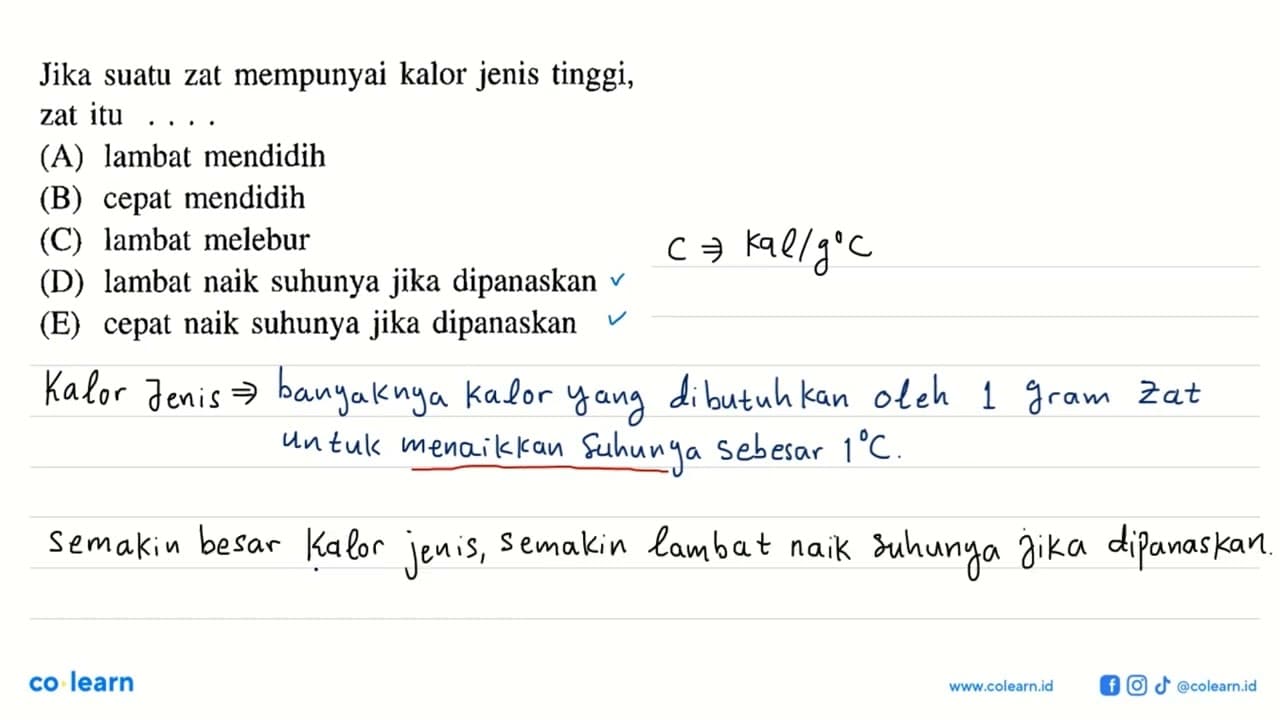 Jika suatu zat mempunyai kalor jenis tinggi,
zat itu . . . .
(A) lambat mendidih
(B) cepat mendidih
(C) lambat melebur
(D) lambat naik suhunya jika dipanaskan ✓
(E) cepat naik suhunya jika dipanaskan ✓
C ⇒ kal/g°C
Kalor Jenis ⇒ banyaknya kalor yang dibutuhkan oleh 1 gram zat
untuk menaikkan Suhunya sebesar 1°C.
semakin besar Kalor jenis, semakin lambat naik suhunya jika dipanaskan.
co learn
www.colearn.id @colearn.id